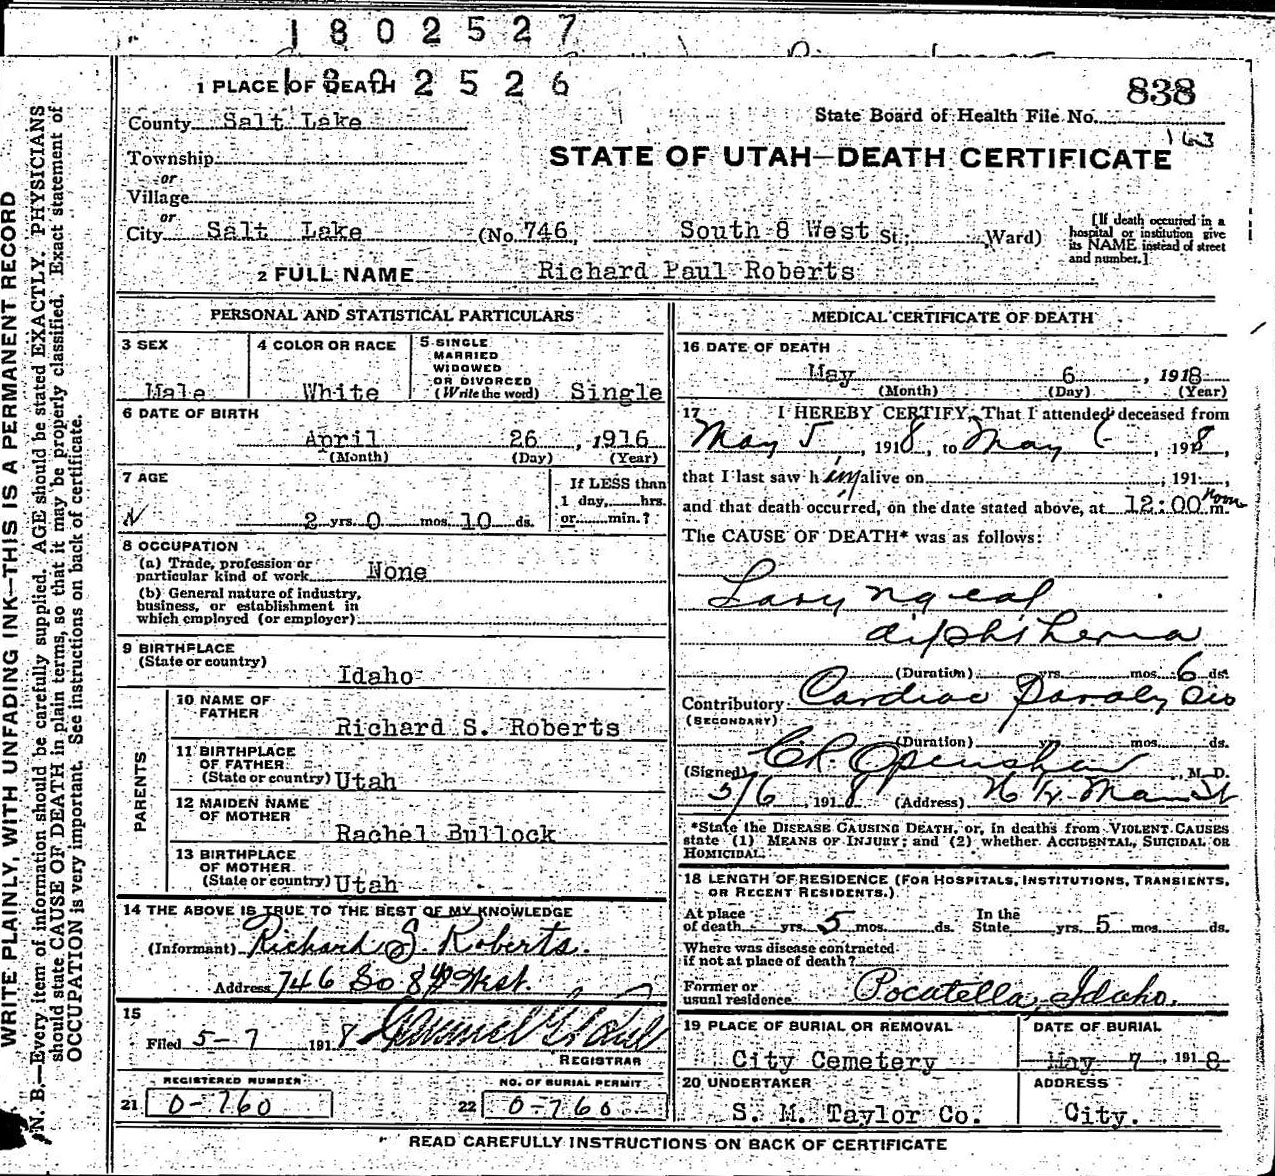 1802527
1802526
1 PLACE OF DEATH
838
State Board of Health File No.
163
County Salt Lake
STATE OF UTAH—DEATH CERTIFICATE
Township
or
Village
or
City Salt Lake (No. 746, South 8 West St.; Ward)
[If death occurred in a
hospital or institution give
its NAME instead of street
and number.]
2 FULL NAME Richard Paul Roberts
PERSONAL AND STATISTICAL PARTICULARS
3 SEX
Male
4 COLOR OR RACE
White
5 SINGLE
MARRIED
WIDOWED
OR DIVORCED
(Write the word) Single
6 DATE OF BIRTH
April 26, 1916
(Month) (Day) (Year)
7 AGE
2 yrs. 0 mos. 10 ds.
If LESS than
1 day, hrs.
or min.?
8 OCCUPATION
(a) Trade, profession or
particular kind of work None
(b) General nature of industry,
business, or establishment in
which employed (or employer)
9 BIRTHPLACE
(State or country)
Idaho
PARENTS
10 NAME OF
FATHER
Richard S. Roberts
11 BIRTHPLACE
OF FATHER
(State or country) Utah
12 MAIDEN NAME
OF MOTHER
Rachel Bullock
13 BIRTHPLACE
OF MOTHER
(State or country) Utah
14 THE ABOVE IS TRUE TO THE BEST OF MY KNOWLEDGE
(Informant) Richard S. Roberts.
Address 746 So 8th West.
15
Filed 5-7 1918
REGISTRAR
REGISTERED NUMBER
21 0-760
NO. OF BURIAL PERMIT
22 0-760
MEDICAL CERTIFICATE OF DEATH
16 DATE OF DEATH
May 6, 1918
(Month) (Day) (Year)
17 I HEREBY CERTIFY, That I attended deceased from
May 5, 1918, to May 6, 1918,
that I last saw him alive on , 191 ,
and that death occurred, on the date stated above, at 12:00 Noon m.
The CAUSE OF DEATH* was as follows:
Laryngeal
diphtheria
(Duration) yrs. mos. 6 ds.
Contributory Cardiac Paralysis
(SECONDARY)
(Duration) yrs. mos. ds.
(Signed) C.R. Openshaw, M. D.
5/6, 1918 (Address) Main St
*State the DISEASE CAUSING DEATH, or, in deaths from VIOLENT CAUSES
state (1) MEANS OF INJURY; and (2) whether ACCIDENTAL, SUICIDAL OR
HOMICIDAL.
18 LENGTH OF RESIDENCE (FOR HOSPITALS, INSTITUTIONS, TRANSIENTS,
OR RECENT RESIDENTS.)
At place
of death yrs. 5 mos. ds.
In the
State yrs. 5 mos. ds.
Where was disease contracted
if not at place of death?
Former or
usual residence Pocatella, Idaho.
19 PLACE OF BURIAL OR REMOVAL
City Cemetery
DATE OF BURIAL
May 7, 1918
20 UNDERTAKER
S. M. Taylor Co.
ADDRESS
City.
READ CAREFULLY INSTRUCTIONS ON BACK OF CERTIFICATE
WRITE PLAINLY, WITH UNFADING INK—THIS IS A PERMANENT RECORD
N. B.—Every item of information should be carefully supplied. AGE should be stated EXACTLY. PHYSICIANS
should state CAUSE OF DEATH in plain terms, so that it may be properly classified. Exact statement of
OCCUPATION is very important. See instructions on back of certificate.